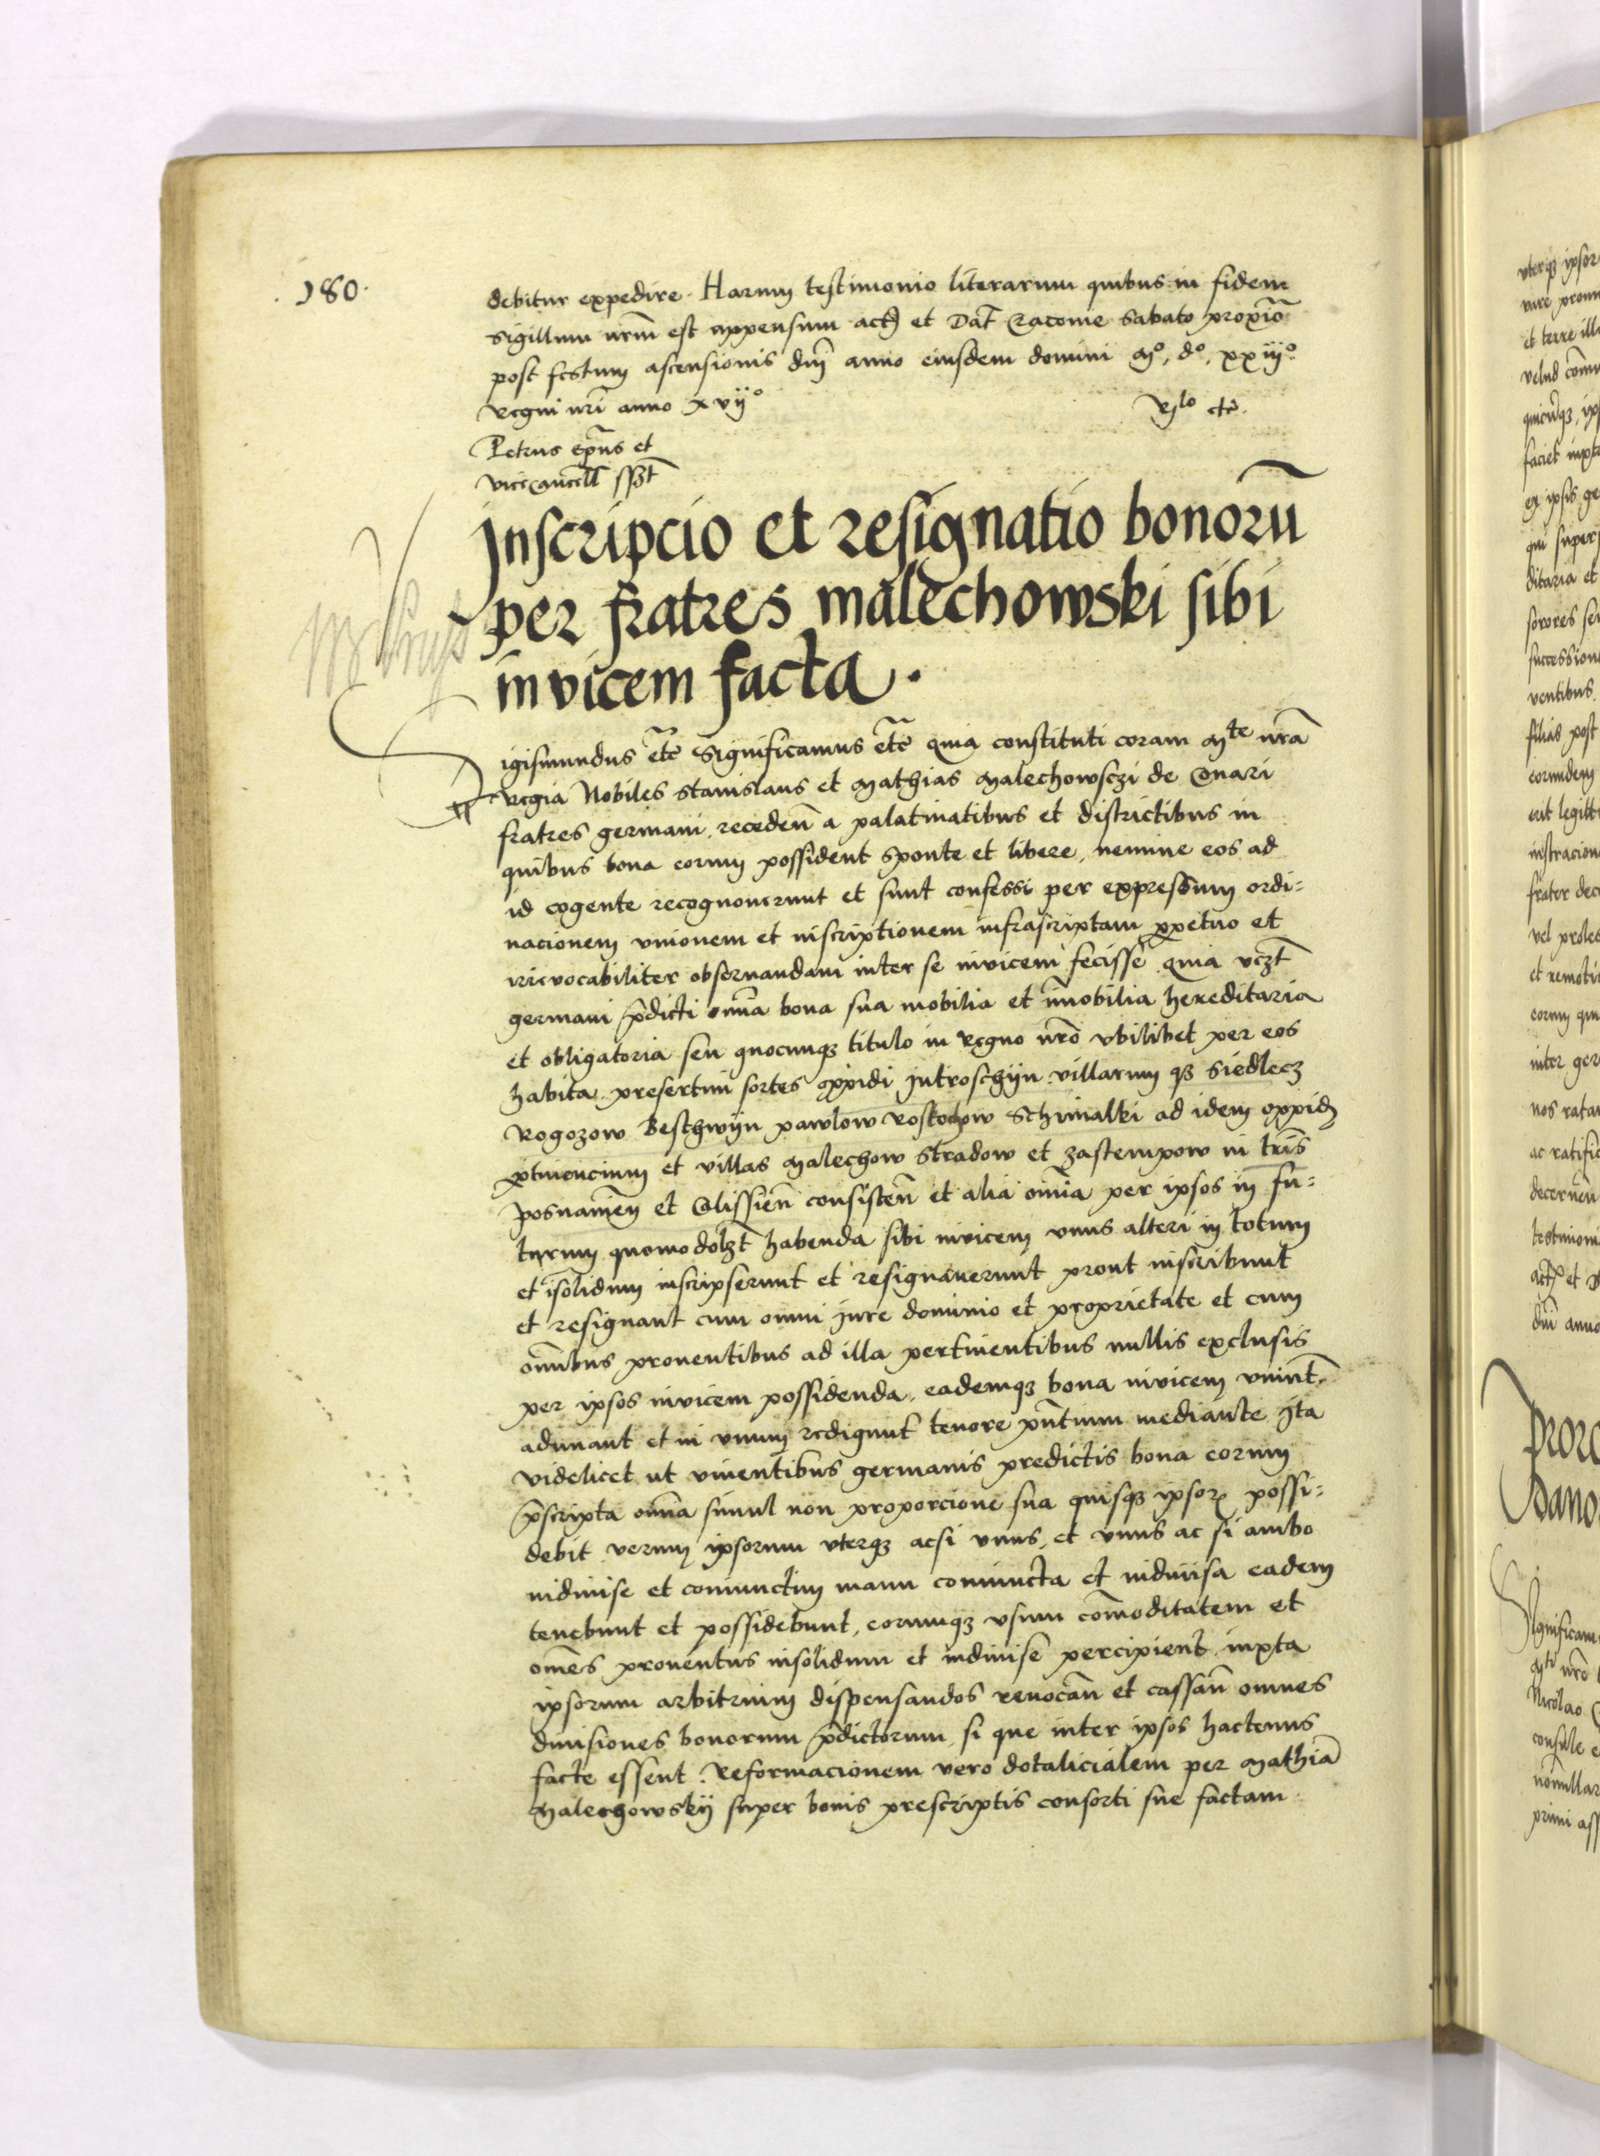 .180.
debitur expedire. Harum testimonio literarum quibus in fidem
Sigillum nrm̄ est appensum act) et Dat̄ Cracovie Sabato proximo
post festum ascensionis dnī anno eiusdem domini Mº. dº. xxiijº.
Regni nrī anno xvijº
Rlo etc̄.
Petrus ep̄us et
vicecancell sszt̄
Inscripcio et resignatio bonorū
per fratres malechowski sibi
invicem facta.
Sigismundus etc̄ Significamus etc̄ quia constituti coram Mte nrā
Regia Nobiles Stanislaus et Mathias Malechowsczi de Conari
fratres germani, recedeñ a palatinatibus et districtibus in
quibus bona eorum possident sponte et libere, nemine eos ad
id cogente recognoverunt et sunt confessi per expressum ordi=
nacionem unionem et inscriptionem infrascriptam ppetuo et
irrevocabiliter observandam inter se invicem fecisse quia vczt̄
germani p̄dicti omnia bona sua mobilia et īmobilia hereditaria
et obligatoria seu quocunqꝫ titulo in Regno nrō ubilibet per eos
habita presertim sortes oppidi Jutroschijn villarum qꝫ Siedlecz
Rogozow Beschwijn pawlow Roskochow Schimalki ad idem oppid)
ptinencium et villas Malechow Stradow et Zastempow in tris̄
Posnanień et Calissień consisteñ et alia omnia per ipsos in fu=
turum quomodolꝫt habenda sibi invicem unus alteri in totum
et īsolidum inscripserunt et resignaverunt prout inscribunt
et resignant cum omni jure dominio et proprietate et cum
omībus proventibus ad illa pertinentibus nullis exclusis
per ipsos invicem possidenda, eademqꝫ bona invicem uniunt̄,
adunant et in unum redigunt tenore pn̄tium mediante Ita
videlicet ut viventibus germanis predictis bona eorum
p̄scripta omnia simul non proporcione sua quisqꝫ ipsorꝝ possi=
debit verum ipsorum uterqꝫ acsi unus, et unus ac si ambo
indivise et coniunctim manu coniuncta et indivisa eadem
tenebunt et possidebunt, eorumqꝫ usum cōmoditatem et
omēs proventus insolidum et indivise percipient iuxta
ipsorum arbitrium dispensandos revocañ et cassañ omnes
divisiones bonorum p̄dictorum, si que inter ipsos hactenus
facte essent. Reformacionem vero dotalicialem per Mathiā
Malechowskij super bonis prescriptis consorti sue factam